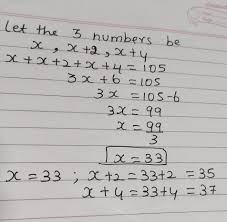 Let the 3 numbers be
x, x+2, x+4
x+x+2+x+4=105
3x+6=105
3x=105-6
3x=99
x=99
3
x=33
x=33 ; x+2=33+2=35
x+4=33+4=37